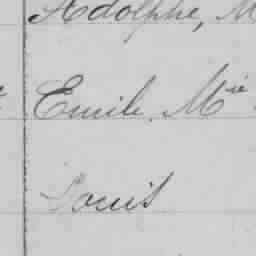 Adolphe, M
Emile, Mie
Louis